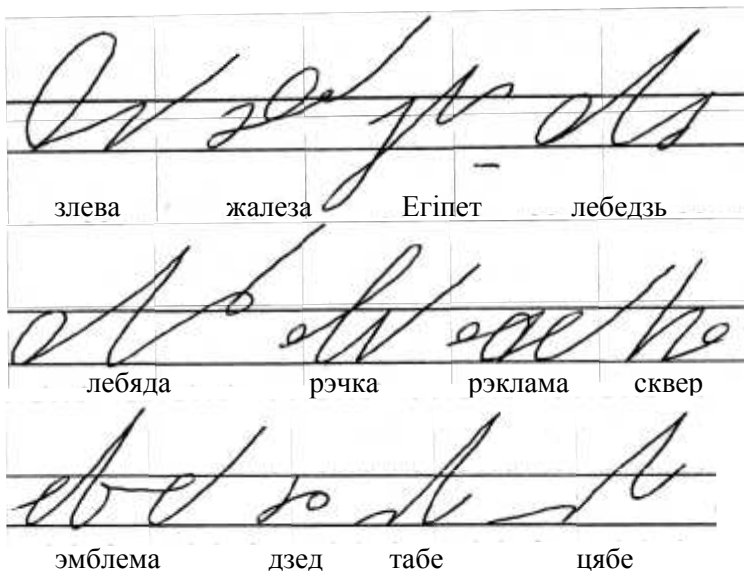 злева жалеза Егіпет лебедзь
лебяда рэчка рэклама сквер
эмблема дзед табе цябе